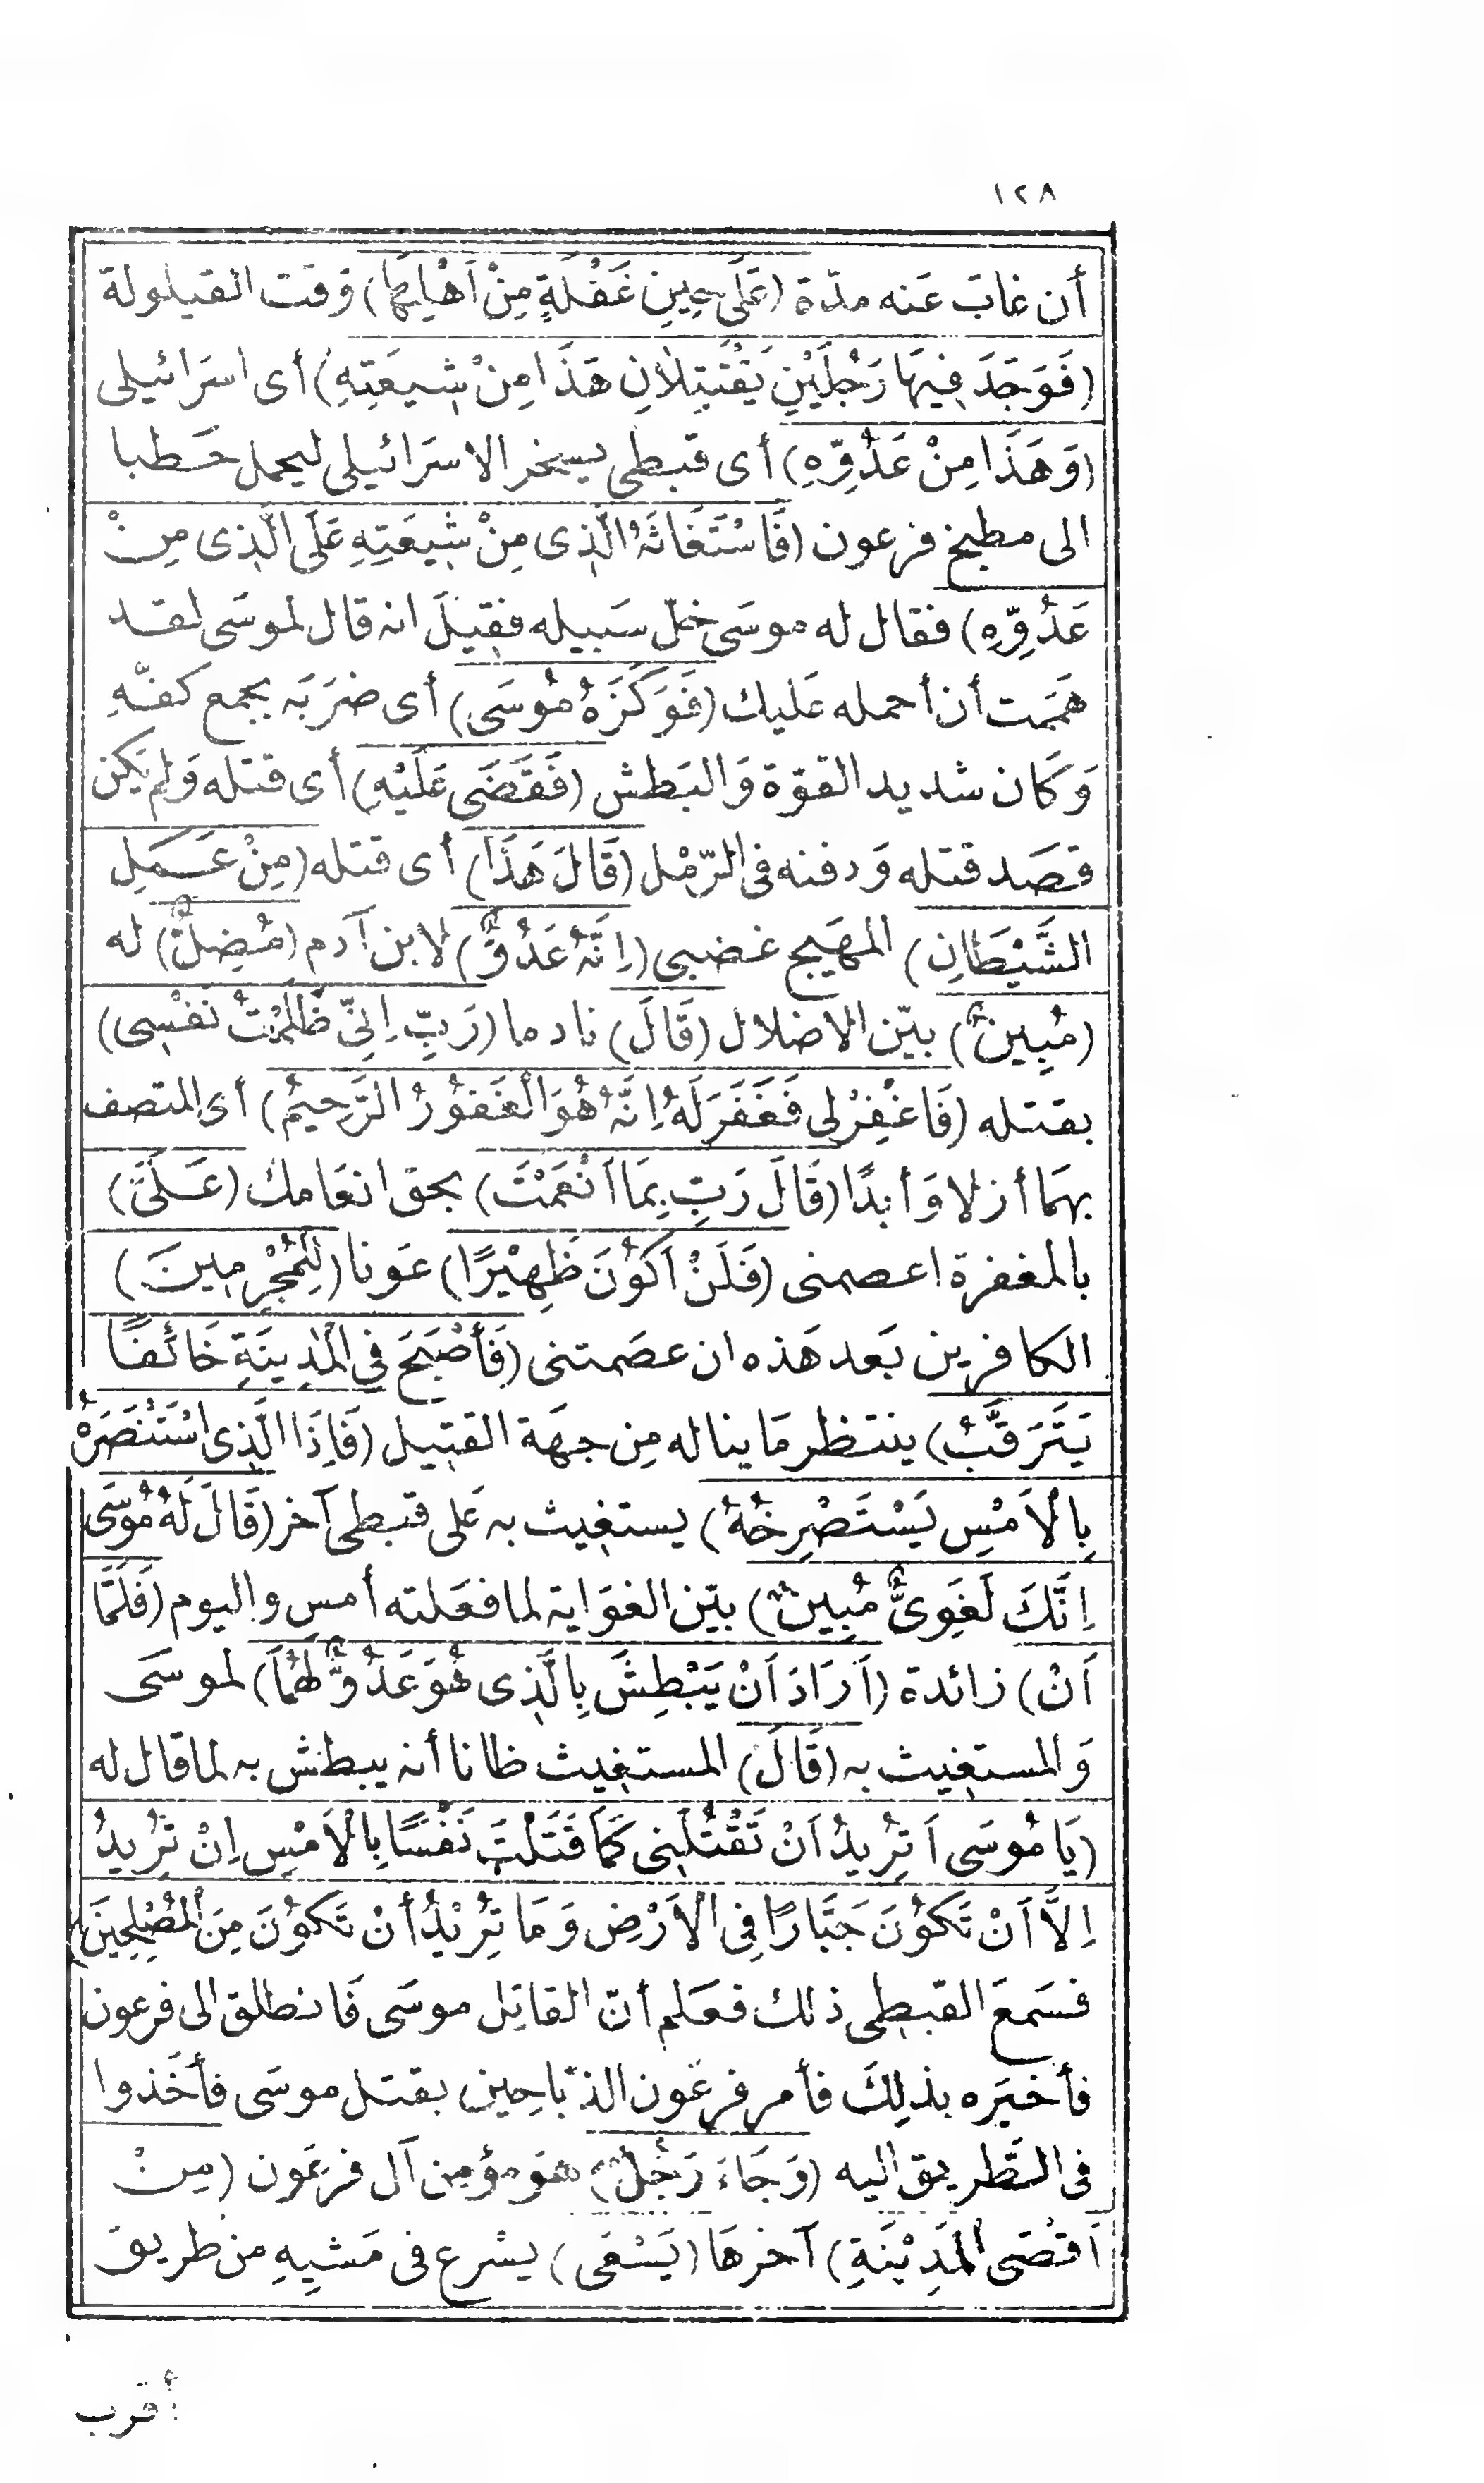 ١٢٨
أن غابَ عَنه مدّة (عَلَى حِينِ غَفْلَةٍ مِنْ اَهْلِهَا) وَقت القيلولة
(فَوَجَدَ فِيهَا رَجُلَيْنِ يَقْتَتِلَانِ هَذَا مِنْ شِيعَتِهِ) أى اسرَائيلى
(وَهَذَا مِنْ عَدُوِّهِ) أى قبطى يسخر الاسرَائيلى ليحمل حَطبا
الى مطبخ فرعون (فَاسْتَغَاثَهُ الَّذِى مِنْ شِيعَتِهِ عَلَى الَّذِى مِنْ
عَدُوِّهِ) فقال له موسَى خلّ سَبيله فقِيلَ انه قال لموسَى لقد
هَمَمت أن أحمله عَليك (فَوَكَزَهُ مُوسَى) أى ضرَبَه بجمع كفّهِ
وَكَان شديد القوّة وَالبَطش (فَقَضَى عَلَيْهِ) أى قتله وَلم يَكن
قصَد قتله وَدفنه فى الرّمْل (قَالَ هَذَا) أى قتله (مِنْ عَمَلِ
الشَّيْطَانِ) المهَيج غضبى (اِنَّهُ عَدُوٌّ) لابن آدم (مُضِلٌّ) له
(مُبِينٌ) بيّن الاضلال (قَالَ) نادما (رَبِّ اِنِّى ظَلَمْتُ نَفْسِى)
بقتله (فَاغْفِرْ لِى فَغَفَرَ لَهُ اِنَّهُ هُوَ الْغَفُورُ الرَّحِيمُ) أى المتصف
بهمَا أزلا وَأبدًا (قَالَ رَبِّ بِمَا اَنْعَمْتَ) بحق انعَامك (عَلَىَّ)
بالمغفرة اعصمنى (فَلَنْ اَكُونَ ظَهِيْرًا) عَونا (لِلْمُجْرِمِينَ)
الكافرين بَعد هَذه ان عصَمتنى (فَأَصْبَحَ فِى الْمَدِينَةِ خَائَفًا
يَتَرَقَّبُ) ينتظر مَا يناله مِن جهَة القتِيل (فَاِذَا الَّذِى اسْتَنْصَرَهُ
بِالْاَمْسِ يَسْتَصْرِخُهُ) يستغيث به عَلى قبطى آخر (قَالَ لَهُ مُوسَى
اِنَّكَ لَغَوِىٌّ مُبِينٌ) بيّن الغوَاية لما فعَلته أمس واليوم (فَلَمَّا
اَنْ) زائدة (اَرَادَ اَنْ يَبْطِشَ بِالَّذِى هُوَ عَدُوٌّ لَهُمَا) لموسَى
وَالمستغيث به (قَالَ) المستغيث ظانا أنه يبطش به لما قال له
(يَا مُوسَى اَتُرِيدُ اَنْ تَقْتُلَنِى كَمَا قَتَلْتَ نَفْسًا بِالْاَمْسِ اِنْ تُرِيدُ
اِلَّا اَنْ تَكُونَ جَبَّارًا فِى الْاَرْضِ وَمَا تُرِيْدُ أنْ تَكُونَ مِنَ الْمُصْلِحِينَ)
فسَمعَ القبطى ذلك فعَلم أنّ القاتل موسَى فَانطلق الى فرعون
فأخبَره بذلِكَ فأمر فرعَون الذبّاحِين بقتل موسَى فأخَذوا
فى الطَّريق اليه (وَجَاءَ رَجُلٌ) هوَ مؤمن آل فرعَون (مِنْ
اَقْصَى الْمَدِيْنَةِ) آخرهَا (يَسْعَى) يسْرع فى مَشيِهِ من طريق
أقرب